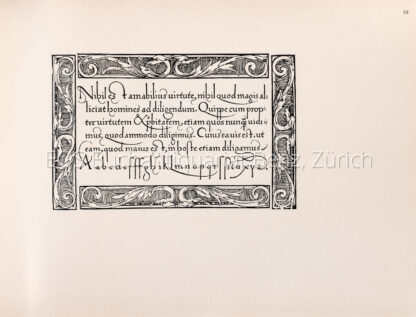 10
Nihil est amabilius uirtute, nihil quod magis al
liciat homines ad diligendum. Quippe cum prop
ter uirtutem & probitatem, etiam quos nunq̃ uidi
mus, quodammodo diligimus. Cuius ea uis est. ut
eam, quod maius est, in hoste etiam diligamus
A a b c d e f f g h i k l m n o p q r s t u x y z
Zürich